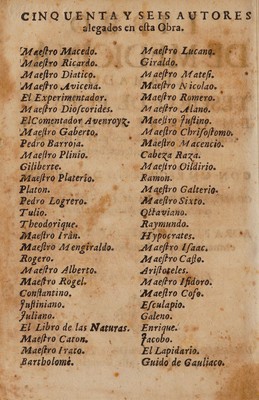 CINQUENTA Y SEIS AUTORES
alegados en esta Obra.
Maeſtro Macedo.
Maeſtro Ricardo.
Maeſtro Diatico.
Maeſtro Avicena.
El Experimentador.
Maeſtro Dioſcorides.
El Comentador Avenroyz.
Maeſtro Gaberto,
Pedro Barroja.
Maeſtro Plinio.
Giliberte.
Maeſtro Platerio.
Platon.
Pedro Logrero.
Tulio.
Theodorique.
Maeſtro Iràn.
Maeſtro Mengiraldo.
Rogero.
Maeſtro Alberto.
Maeſtro Rogel.
Conſtantino.
Juſtiniano.
Juliano.
El Libro de las Naturas.
Maeſtro Caton.
Maeſtro Irato.
Bartholomè.
Maeſtro Lucano.
Giraldo.
Maeſtro Mateſi.
Maeſtro Nicolao.
Maeſtro Romero.
Maeſtro Alano.
Maeſtro Juſtino.
Maeſtro Chriſoſtomo.
Maeſtro Macencio.
Cabeza Raza.
Maeſtro Oildirio.
Ramon.
Maeſtro Galterio.
Maeſtro Sixto.
Octaviano.
Raymundo.
Hypocrates.
Maeſtro Iſaac.
Maeſtro Caſio.
Ariſtoteles.
Maeſtro Iſidoro.
Maeſtro Coſo.
Eſculapio.
Galeno.
Enrique.
Jacobo.
El Lapidario.
Guido de Gauliaco.